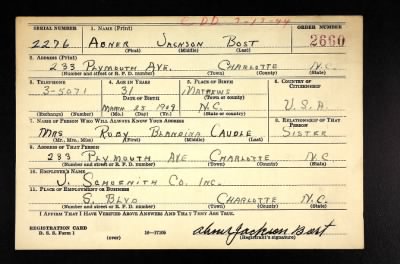 C DD 3-17-44
SERIAL NUMBER 1. NAME (Print) ORDER NUMBER
2276 ABNER JACKSON BOST 2660
(First) (Middle) (Last)
2. ADDRESS (Print)
233 PLYMOUTH AVE. CHARLOTTE N.C.
(Number and street or R. F. D. number) (Town) (County) (State)
3. TELEPHONE 4. AGE IN YEARS 5. PLACE OF BIRTH 6. COUNTRY OF CITIZENSHIP
3-5071 31 MATHEWS
DATE OF BIRTH (Town) (County)
MARCH 25 1909 N.C. U.S.A.
(Exchange) (Number) (Mo.) (Day) (Yr.) (State or country)
7. NAME OF PERSON WHO WILL ALWAYS KNOW YOUR ADDRESS 8. RELATIONSHIP OF THAT PERSON
MRS RUBY BLANDINA CAUDLE SISTER
(Mr., Mrs., Miss) (First) (Middle) (Last)
9. ADDRESS OF THAT PERSON
233 PLYMOUTH AVE CHARLOTTE N.C
(Number and street or R. F. D. number) (Town) (County) (State)
10. EMPLOYER'S NAME
CO. INC.
11. PLACE OF EMPLOYMENT OR BUSINESS
S. BLVD CHARLOTTE N.C.
(Number and street or R. F. D. number) (Town) (County) (State)
I AFFIRM THAT I HAVE VERIFIED ABOVE ANSWERS AND THAT THEY ARE TRUE.
REGISTRATION CARD
D. S. S. Form 1 (over) 16-17105 Abner Jackson Bost
(Registrant's signature)